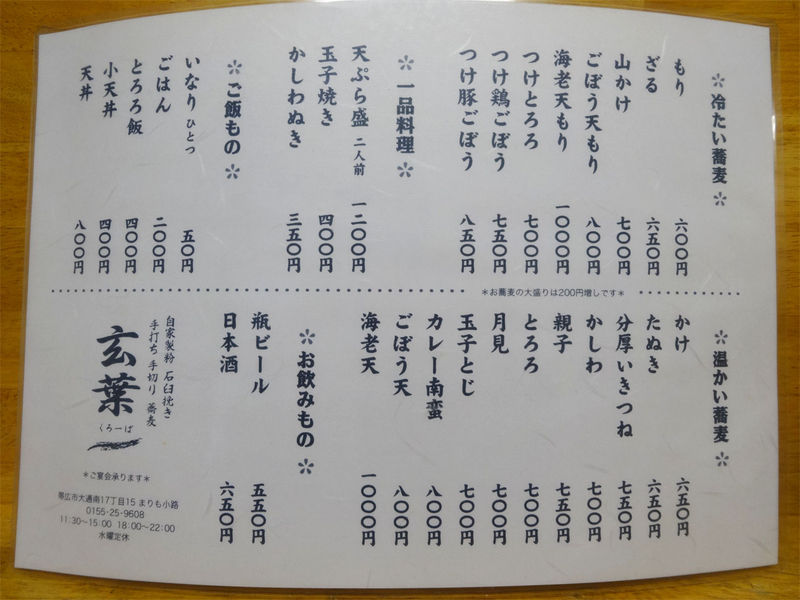 ＊冷たい蕎麦＊
もり 六〇〇円
ざる 六五〇円
山かけ 七〇〇円
ごぼう天もり 八〇〇円
海老天もり 一〇〇〇円
つけとろろ 七〇〇円
つけ鶏ごぼう 七五〇円
つけ豚ごぼう 八五〇円
＊一品料理＊
天ぷら盛 二人前 一二〇〇円
玉子焼き 四〇〇円
かしわぬき 三五〇円
＊ご飯もの＊
いなり ひとつ 五〇円
ごはん 二〇〇円
とろろ飯 四〇〇円
小天丼 四〇〇円
天丼 八〇〇円
＊お蕎麦の大盛りは200円増しです＊
＊温かい蕎麦＊
かけ 六五〇円
たぬき 六五〇円
分厚いきつね 七五〇円
かしわ 七〇〇円
親子 七五〇円
とろろ 七〇〇円
月見 七〇〇円
玉子とじ 七〇〇円
カレー南蛮 八〇〇円
ごぼう天 八〇〇円
海老天 一〇〇〇円
＊お飲みもの＊
瓶ビール 五五〇円
日本酒 六五〇円
自家製粉 石臼挽き
手打ち 手切り 蕎麦
玄葉
くろーば
＊ご宴会承ります＊
帯広市大通南17丁目15 まりも小路
0155-25-9608
11:30～15:00 18:00～22:00
水曜定休